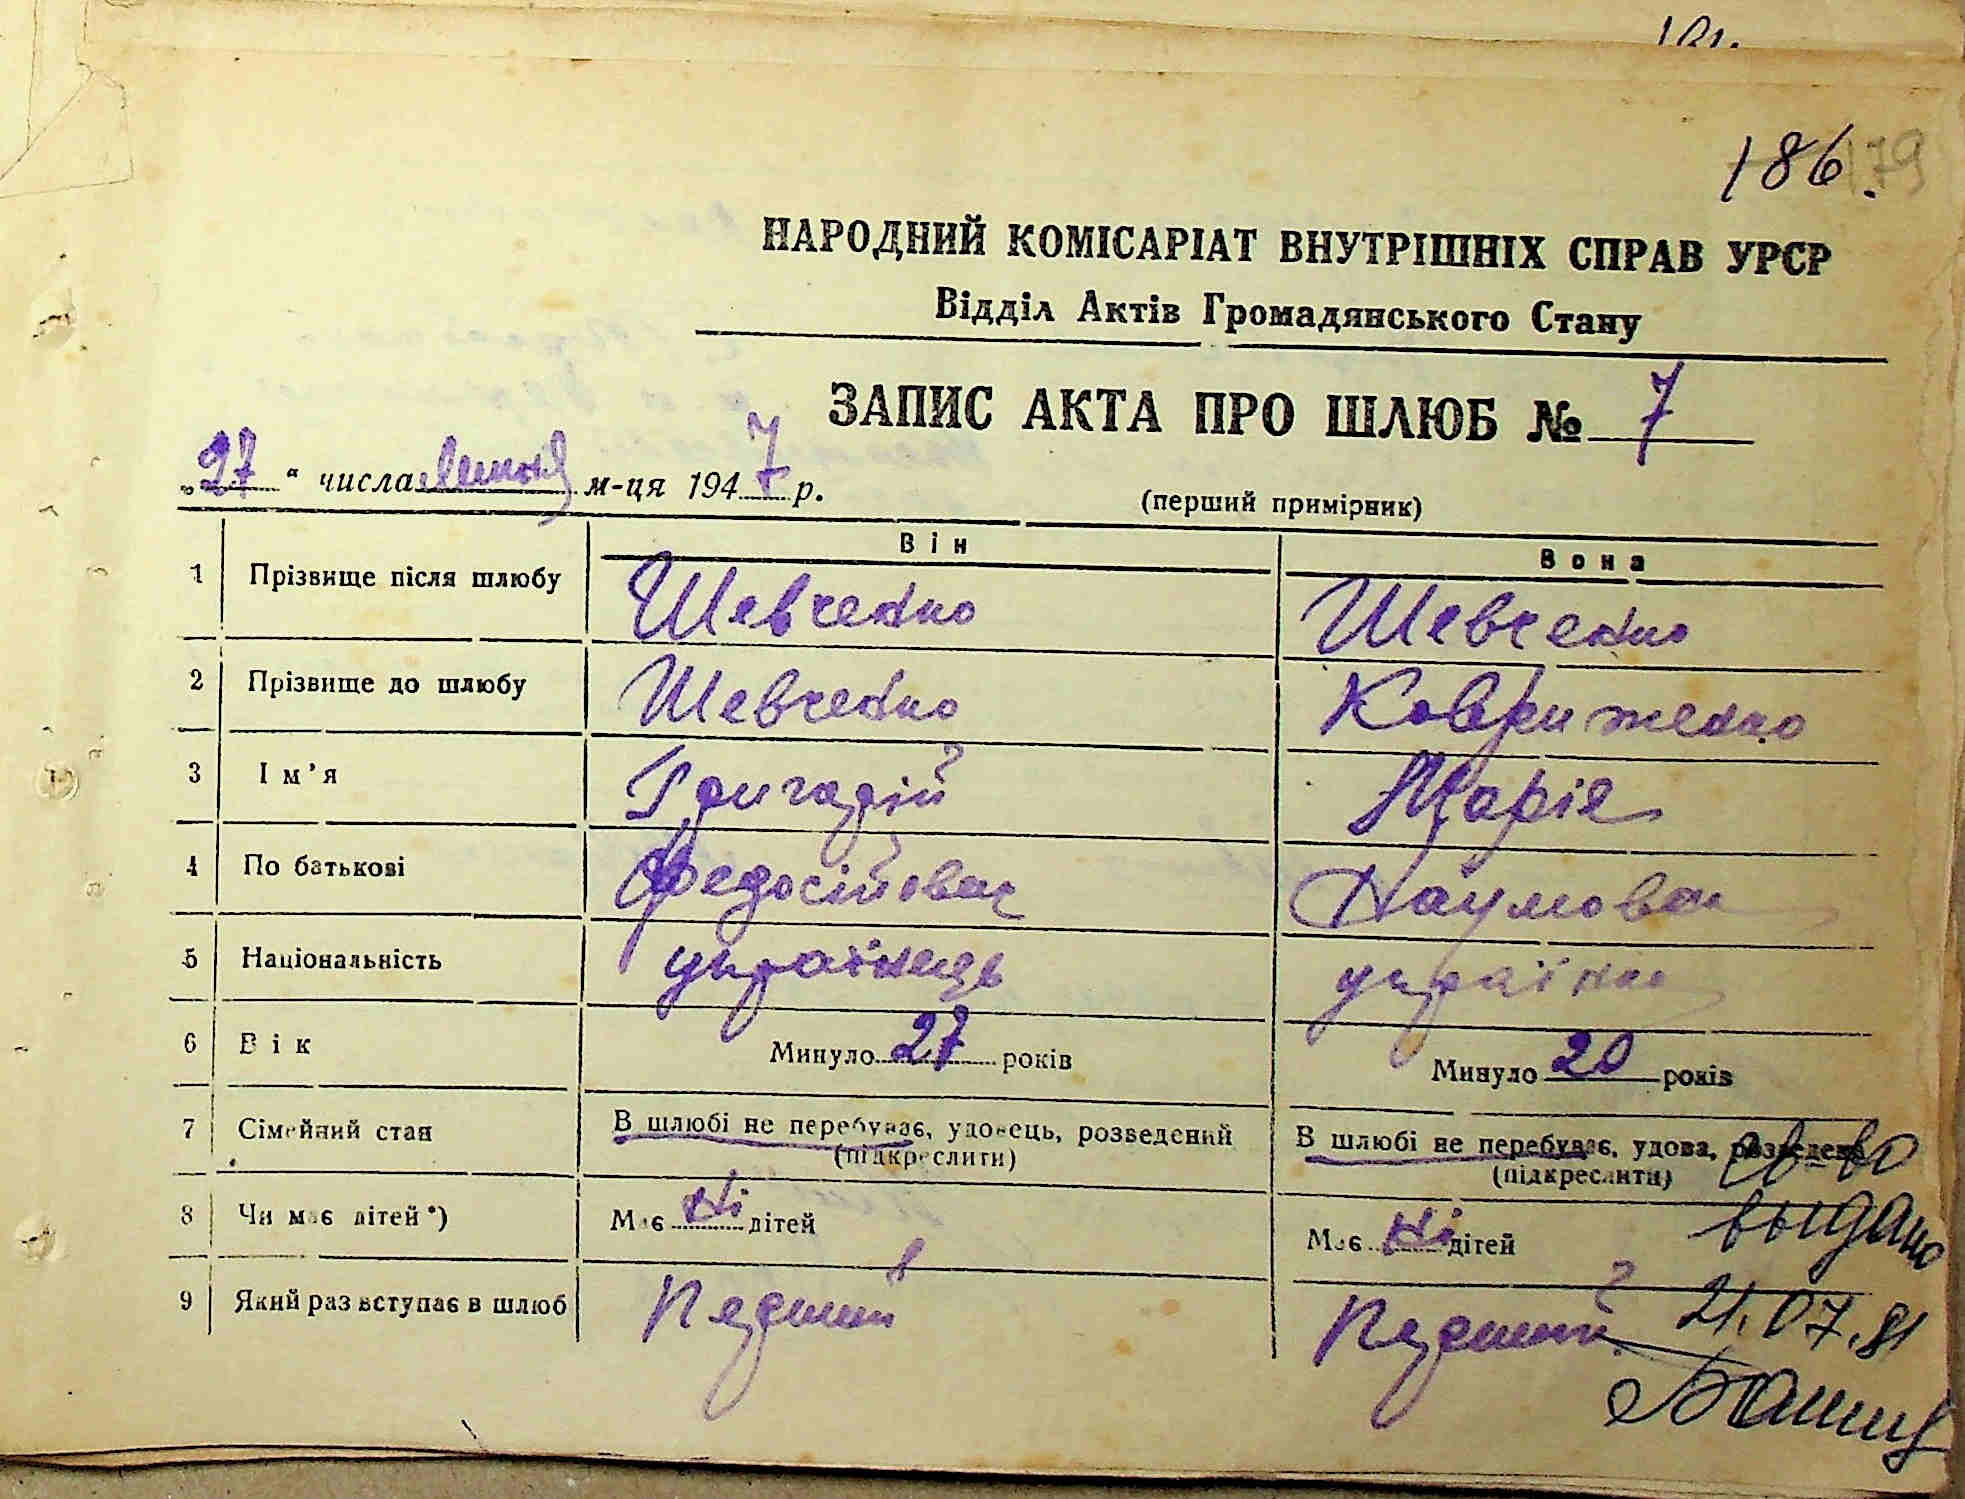 186. 179
НАРОДНИЙ КОМІСАРІАТ ВНУТРІШНІХ СПРАВ УРСР
Відділ Актів Громадянського Стану
ЗАПИС АКТА ПРО ШЛЮБ № 7
„27“ числа м-ця 1947 р.
(перший примірник)
Він Вона
1 Прізвище після шлюбу Шевченко Шевченко
2 Прізвище до шлюбу Шевченко Ковриженко
3 Ім’я Григорій Марія
4 По батькові Федосійович Наумовна
5 Національність українець українка
6 Вік Минуло 27 років Минуло 20 років
7 Сімейний стан В шлюбі не перебуває, удовець, розведений В шлюбі не перебуває, удова, розведена
(підкреслити) (підкреслити)
св-во
выдано
8 Чи має дітей*) Має ні дітей Має ні дітей
9 Який раз вступає в шлюб Перший Перший
21.07.81